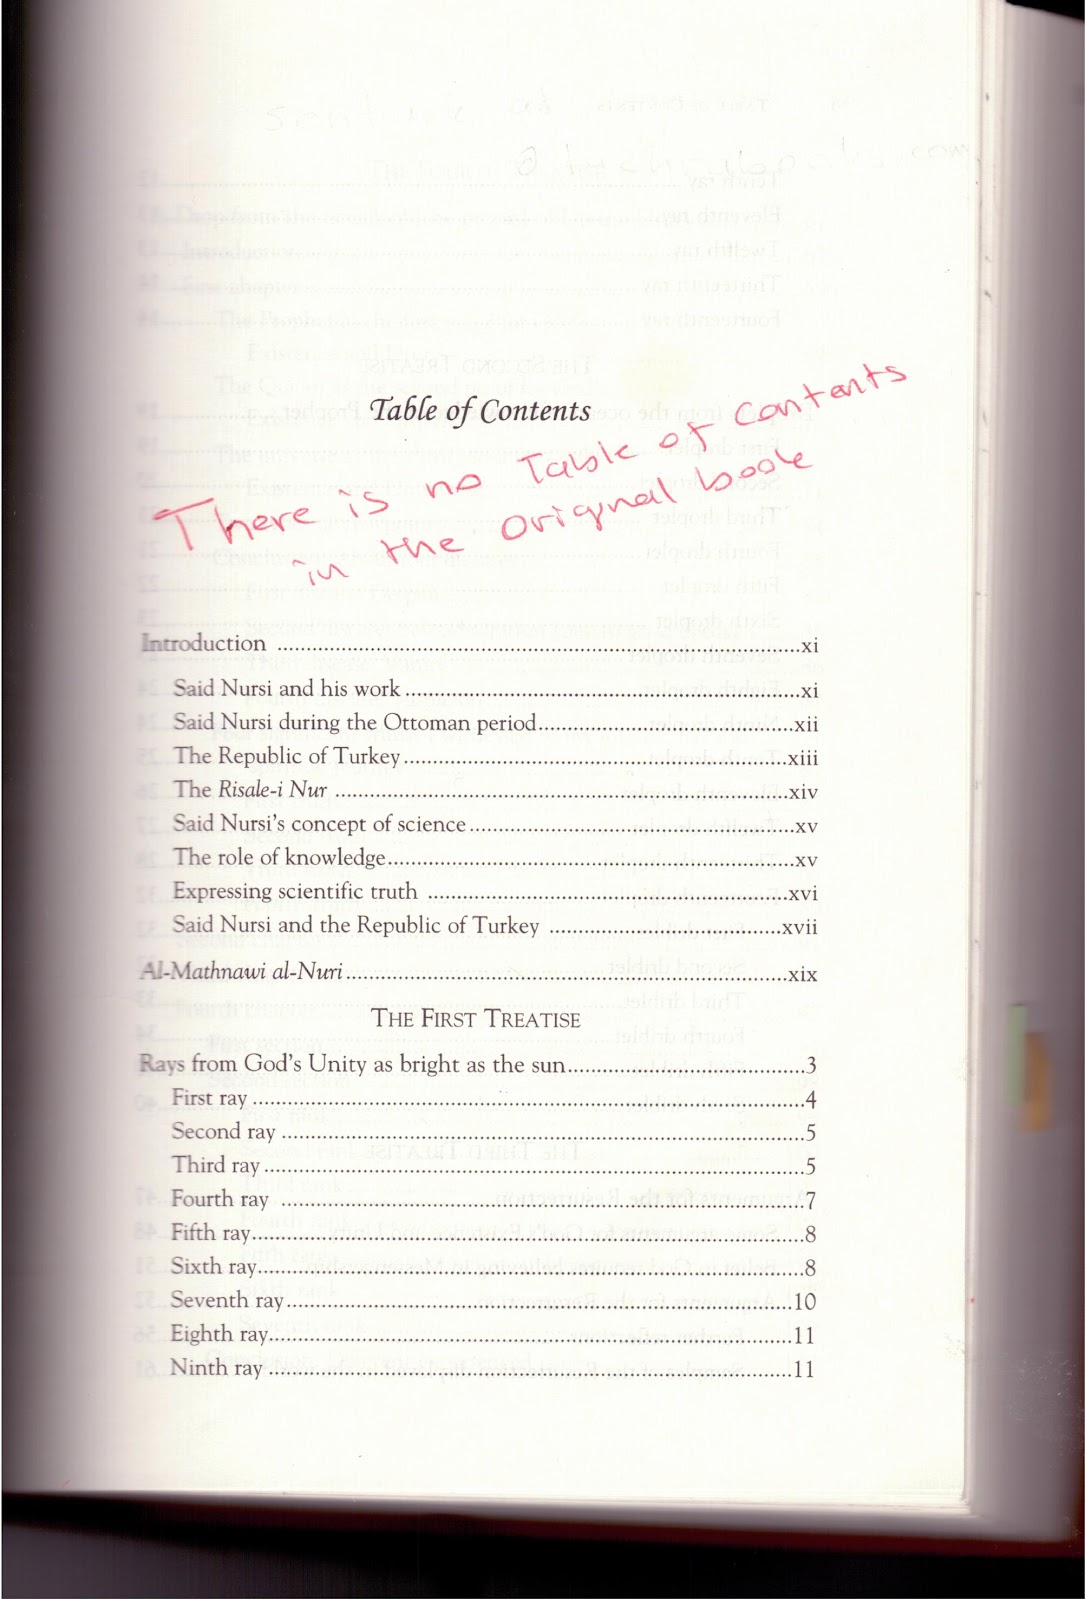 Table of Contents
There is no Table of contents
in the original book
Introduction ........ xi
Said Nursi and his work ........ xi
Said Nursi during the Ottoman period ........ xii
The Republic of Turkey ........ xiii
The Risale-i Nur ........ xiv
Said Nursi's concept of science ........ xv
The role of knowledge ........ xv
Expressing scientific truth ........ xvi
Said Nursi and the Republic of Turkey ........ xvii
Al-Mathnawi al-Nuri ........ xix
THE FIRST TREATISE
Rays from God's Unity as bright as the sun ........ 3
First ray ........ 4
Second ray ........ 5
Third ray ........ 5
Fourth ray ........ 7
Fifth ray ........ 8
Sixth ray ........ 8
Seventh ray ........ 10
Eighth ray ........ 11
Ninth ray ........ 11